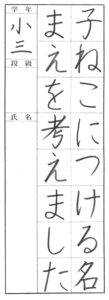 子ねこにつける名
まえを考えました
学年
小三
段級
氏名